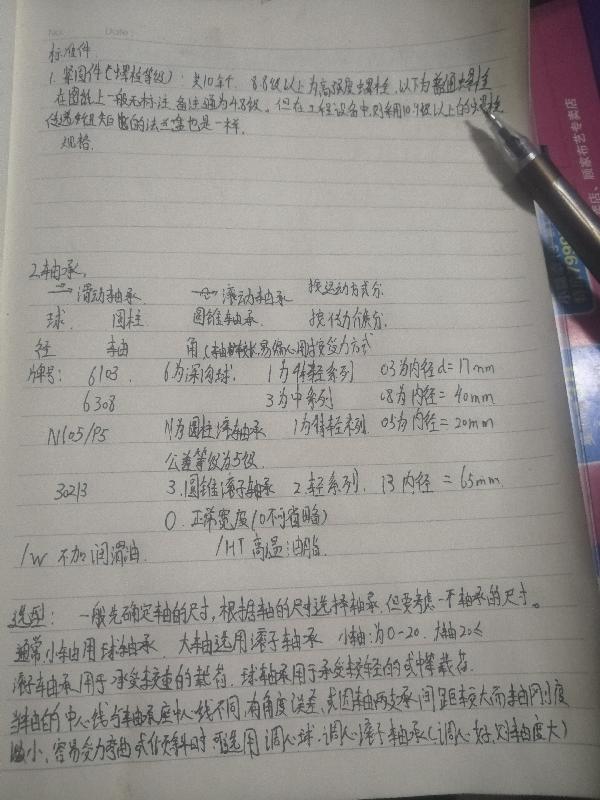 No.  Date:
标准件
1. 紧固件（螺栓等级）：共10个. 8.8级以上为高强度螺栓. 以下为普通螺栓
在图纸上一般无标注 备注通为4.8级。但在工程设备中.则采用10.9级以上的螺栓
的法兰盘也是一样.
规格.
2.轴承.
滑动轴承. 滚动轴承 按运动方式分
球. 圆柱 圆锥轴承. 按传力介质分.
径 轴 角 受力方式
牌号: 6103. 6为深沟球. 1为特轻系列 03为内径d=17mm
6308 3为中系列 08为内径=40mm
N105/P5 N为圆柱滚轴承 1为特轻系列 05为内径=20mm
公差等级为5级.
30213 3.圆锥滚子轴承 2.轻系列. 13内径=65mm.
0.正常宽度(0不可省略)
/W 不加润滑油. /HT 高温油脂.
选型: 一般先确定轴的尺寸，根据轴的尺寸选择轴承.但要考虑一下轴承的尺寸。
通常小轴用球轴承. 大轴选用滚子轴承 小轴:为0-20. 大轴20≤
滚子轴承用于承受较重的载荷. 球轴承用于承受较轻的或中等载荷.
当轴的中心线与轴承座中心线不同,有角度误差,或因轴两支承间距较大而轴刚度
小.容易受力弯曲或倾斜时.可选用调心球.调心滚子轴承(调心好,对轴度大)